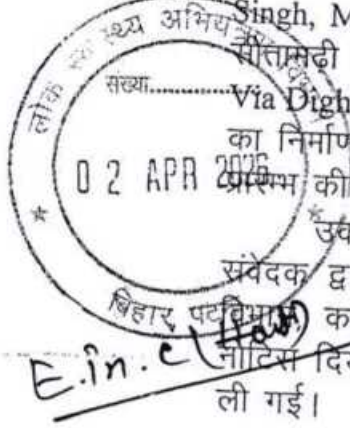 Singh, M
सीतामढ़ी
Via Digh
का निर्माण
प्रारम्भ की
उक
संवेदक द्व
का
नोटिस दिन
ली गई।
लोक स्वास्थ्य अभियंत्रण
संख्या............
02 APR
बिहार, पटना
E.in.C